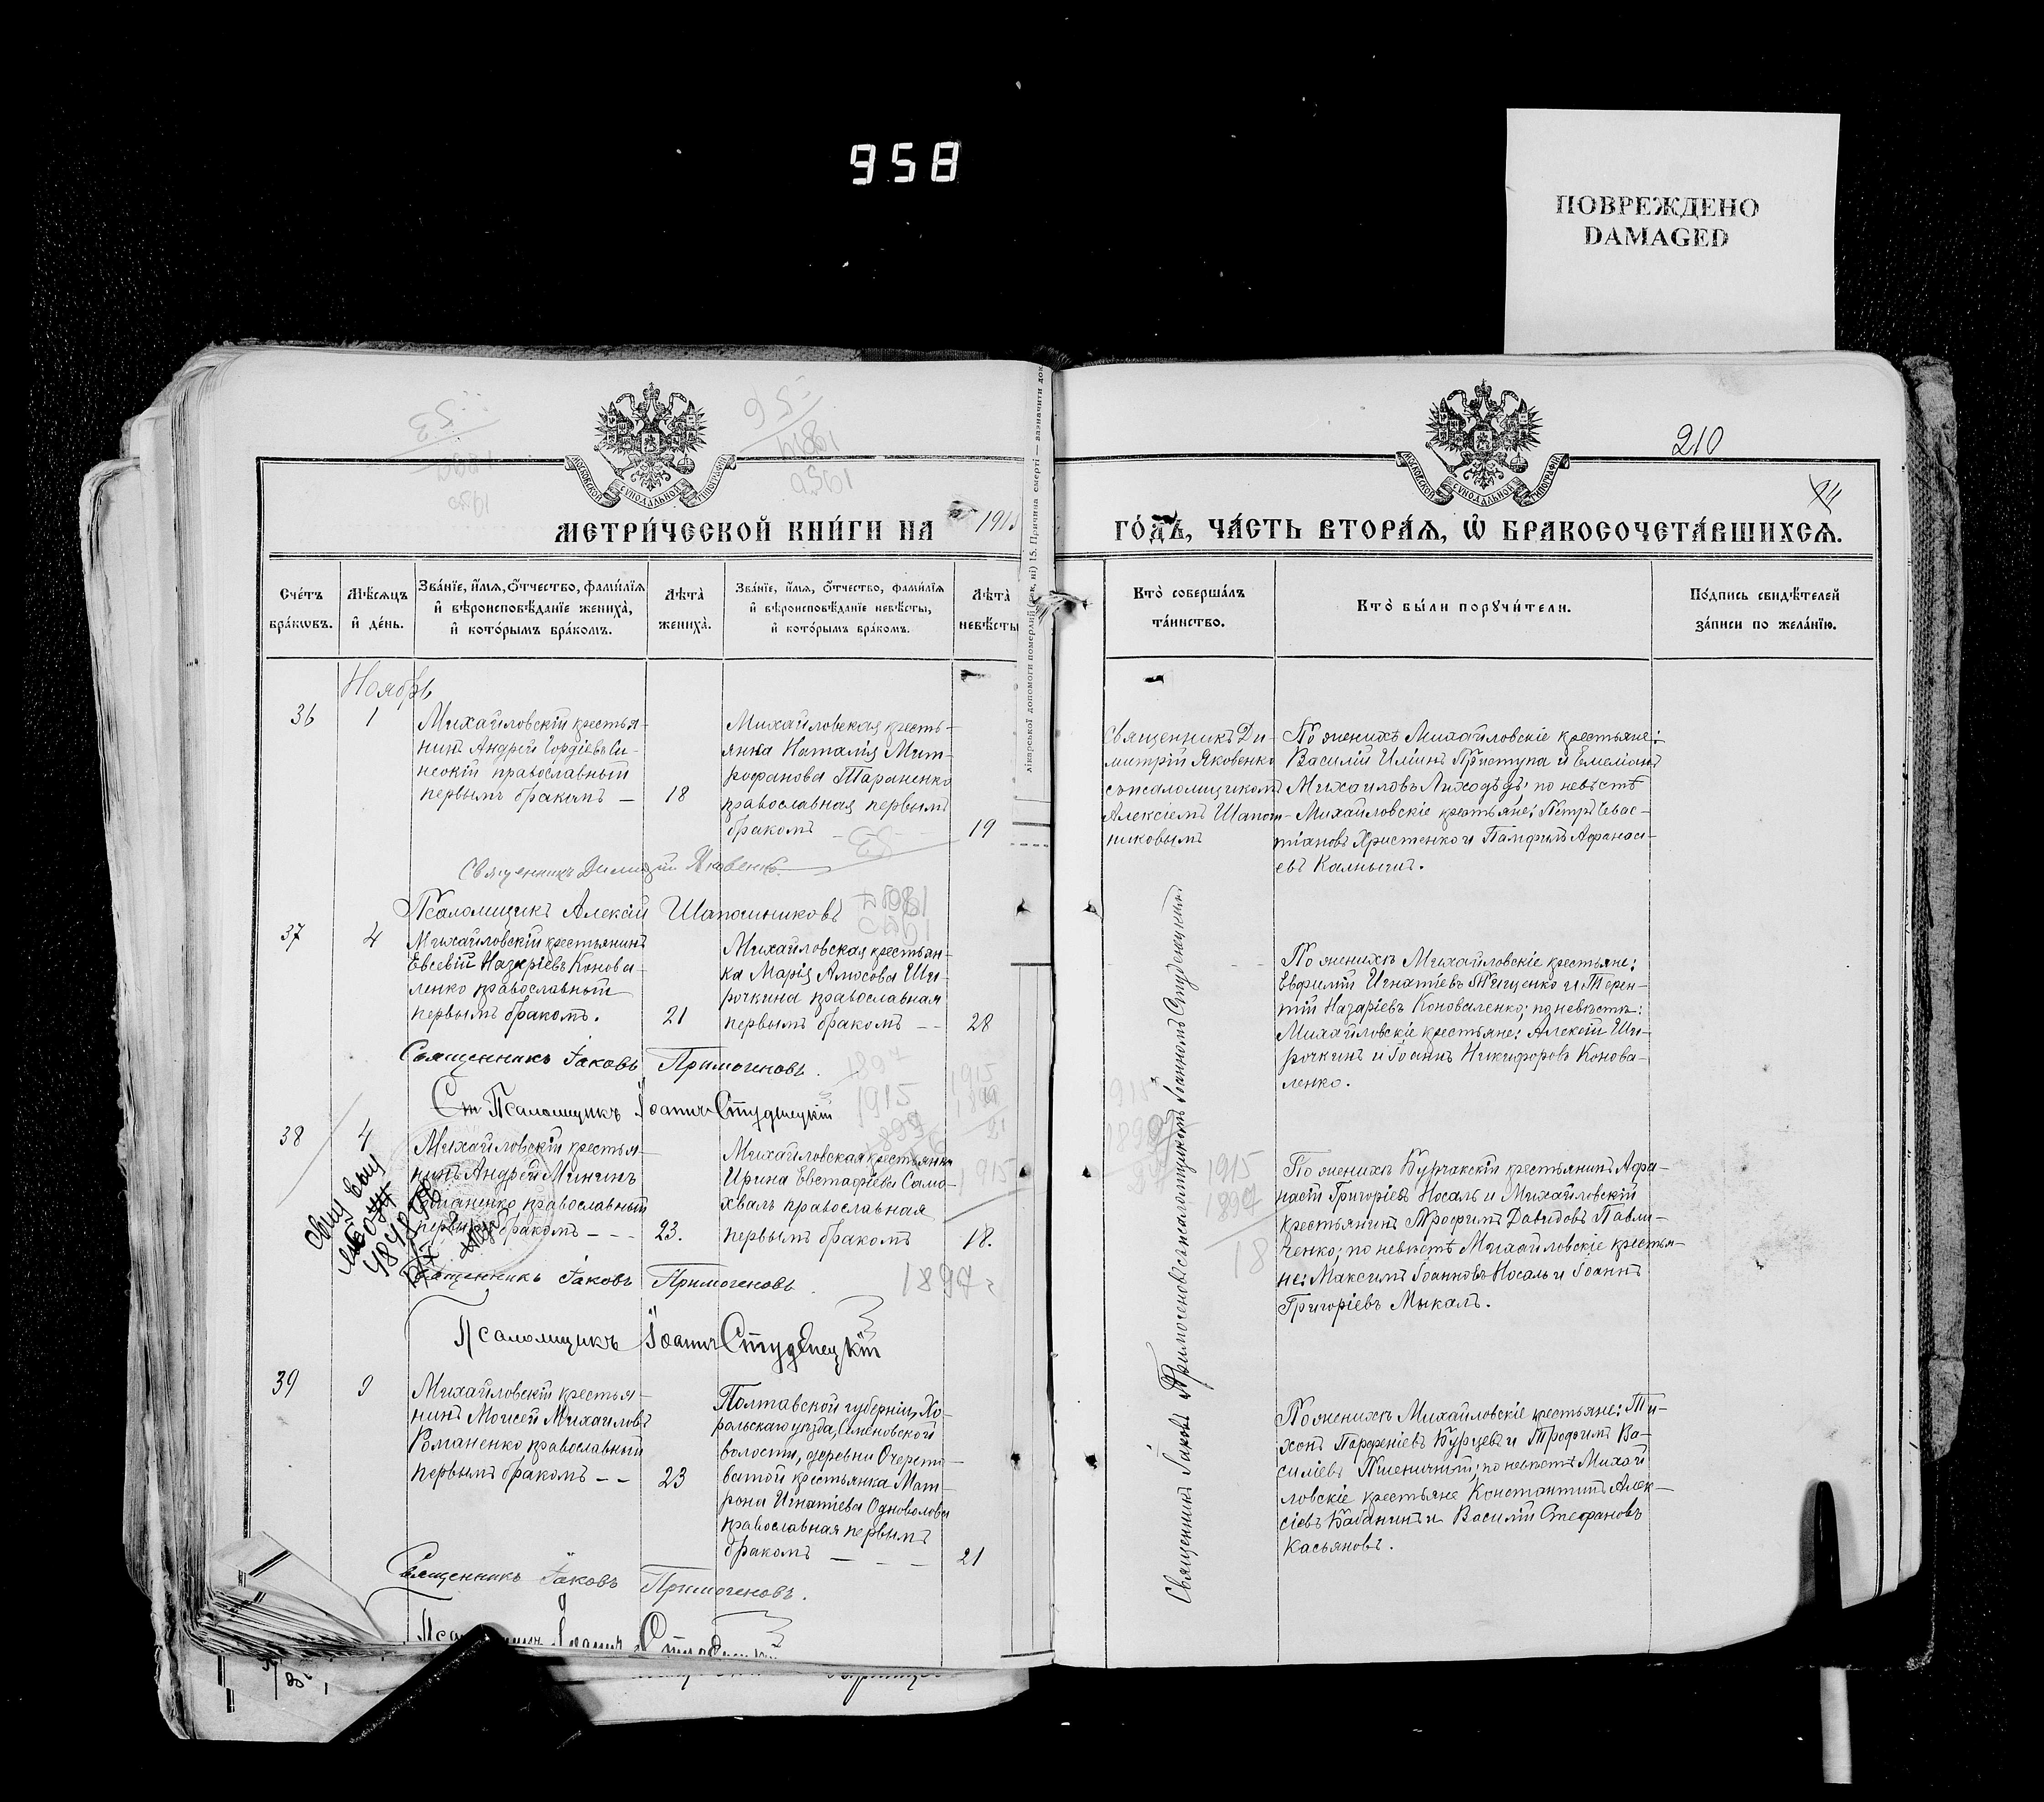 958
ПОВРЕЖДЕНО
DAMAGED
210
МОСКОВСКОЙ СѴНОДАЛЬНОЙ ТИПОГРАФІИ
МОСКОВСКОЙ СѴНОДАЛЬНОЙ ТИПОГРАФІИ
МЕТРИ́ЧЕСКОЙ КНИ́ГИ НА 1915
ГО́ДЪ, ЧА́СТЬ ВТОРА́Я, Ѡ҆ БРАКОСОЧЕТА́ВШИХСЯ.
Сче́тъ бра́кѡвъ.
Мѣ́сяцъ и҆ де́нь.
Зва́нїе, и҆́мя, ѻ҆́тчество, фами́лїя
и҆ вѣроисповѣ́данїе жениха̀,
и҆ кото́рымъ бра́комъ.
Лѣ́та̀ жениха̀.
Зва́нїе, и҆́мя, ѻ҆́тчество, фами́лїя
и҆ вѣроисповѣ́данїе невѣ́сты,
и҆ кото́рымъ бра́комъ.
Лѣ́та̀ невѣ́сты
Кто̀ соверша́лъ та́инство.
Кто̀ бы́ли порꙋчи́тели.
По́дпись свидѣ́телей
за́писи по жела́нїю.
Ноябрь
36
1
Михайловскій крестья-
нинъ Андрей Гордіевъ Си-
нскій православный
первымъ бракомъ —
18
Михайловская кресть-
янка Наталія Мит-
рофанова Тараненко
православная первымъ
бракомъ —
19
Священникъ Ди-
митрій Яковенко
съ псаломщикомъ
Алексіемъ Шапош-
никовымъ
По женихѣ Михайловскіе крестьяне:
Василій Илiинъ Приступа и Емеліанъ
Михаиловъ Лиходѣдъ; по невѣстѣ
Михайловскіе крестьяне: Петръ Севас-
тіановъ Христенко и Памфилъ Афанась-
евъ Калныгъ.
Священникъ Димитрій Яковенко.
Псаломщикъ Алексій Шапошниковъ
37
4
Михайловскій крестьянинъ
Евсевій Назаріевъ Конова-
ленко православный
первымъ бракомъ.
21
Михайловская крестьян-
ка Марія Амосова Ши-
рочкина православная
первымъ бракомъ — —
28
По женихѣ Михайловскіе крестьяне:
Евфимій Игнатіевъ Тищенко и Терен-
тій Назаріевъ Коноваленко; по невѣстѣ:
Михайловскіе крестьяне: Алексій Ши-
рочкинъ и Іоаннъ Никифоровъ Конова-
ленко.
Священникъ Іаковъ Примогеновъ.
Псаломщикъ Іоаннъ Студенецкій
38
4
Михайловскій крестья-
нинъ Андрей Мининъ
православный
первымъ бракомъ — — —
23.
Михайловская крестьянка
Ирина Евстафіева Само-
хвалъ православная
первымъ бракомъ
18.
По женихѣ Бурчакскій крестьянинъ Афа-
насій Григоріевъ Носаль и Михайловскій
крестьянинъ Трофимъ Давидовъ Павли-
ченко; по невѣстѣ Михайловскіе крестья-
не: Максимъ Іоанновъ Носаль и Іоаннъ
Григоріевъ Мыкалъ.
Священникъ Іаковъ Примогеновъ.
1897 г
Псаломщикъ Іоаннъ Студенецкій
39
9
Михайловскій крестья-
нинъ Моисей Михаиловъ
Романенко православный
первымъ бракомъ — —
23
Полтавской губерніи, Хо-
рольскаго уѣзда, Семеновской
волости, деревни Очерето-
ватой крестьянка Мат-
рона Игнатіева Одноволова
православная первымъ
бракомъ — — —
21
По женихѣ Михайловскіе крестьяне: Ти-
хонъ Парфеніевъ Бурцевъ и Трофимъ Ва-
силіевъ Пшеничный; по невѣстѣ Михай
ловскіе крестьяне Константинъ Алек-
сіевъ Бабанинъ и Василій Стефановъ
Касьяновъ.
Священникъ Іаковъ Примогеновъ.
Священникъ Іаковъ Примогеновъ съ псаломщикомъ Іоанномъ Студенецкимъ
1915
1897
18